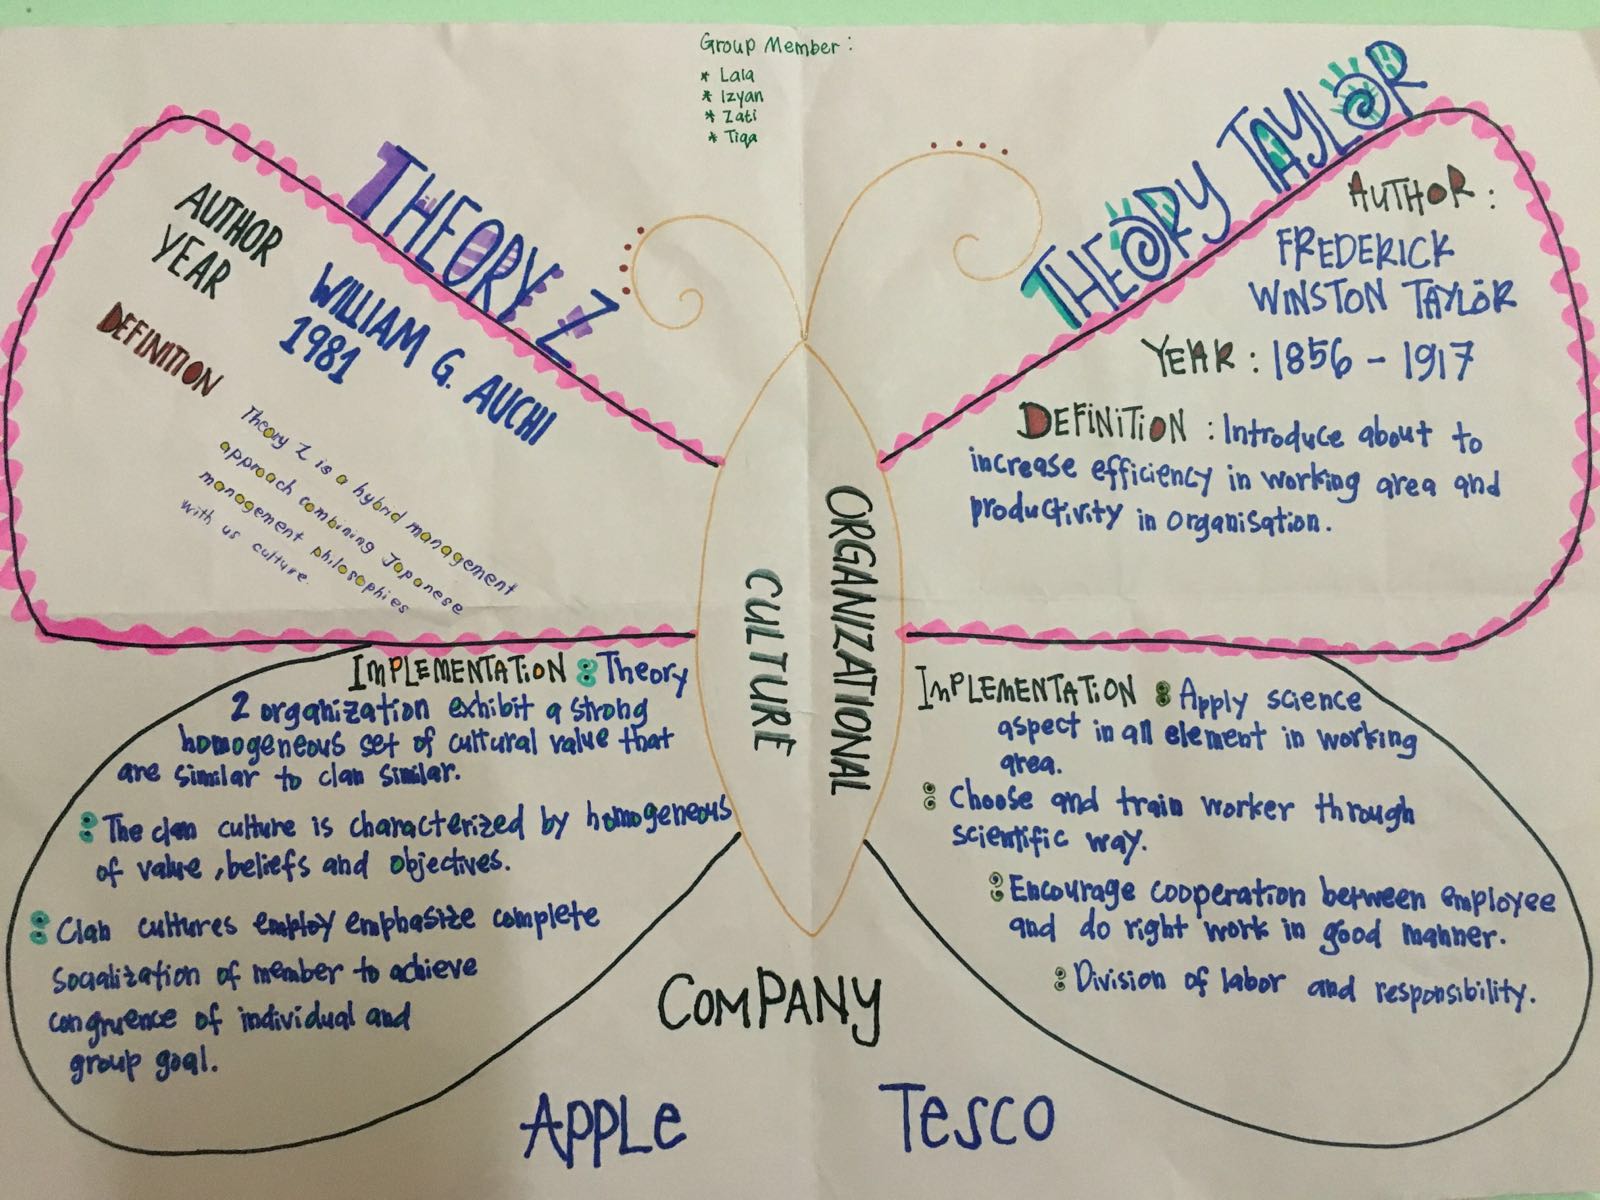 Group Member :
* Lala
* Izyan
* Zati
* Tiqa
THEORY Z
AUTHOR WILLIAM G. AUCHI
YEAR 1981
DEFINITION
Theory Z is a hybrid management
approach combining Japanese
management philosophies
with us culture.
THEORY TAYLOR
AUTHOR :
FREDERICK
WINSTON TAYLOR
YEAR : 1856 - 1917
DEFINITION : Introduce about to
increase efficiency in working area and
productivity in organisation.
ORGANIZATIONAL
CULTURE
IMPLEMENTATION : Theory
Z organization exhibit a strong
homogeneous set of cultural value that
are similar to clan similar.
: The clan culture is characterized by homogeneous
of value, beliefs and objectives.
: Clan cultures employ emphasize complete
socialization of member to achieve
congruence of individual and
group goal.
IMPLEMENTATION : Apply science
aspect in all element in working
area.
: Choose and train worker through
scientific way.
: Encourage cooperation between employee
and do right work in good manner.
: Division of labor and responsibility.
COMPANY
APPLE
TESCO